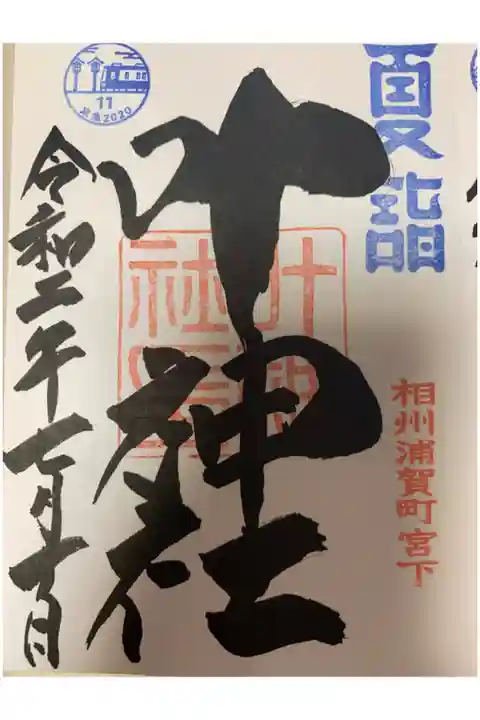 夏詣
相州浦賀町宮下
叶神社
叶神社
令和二年七月十一日
11
夏詣2020